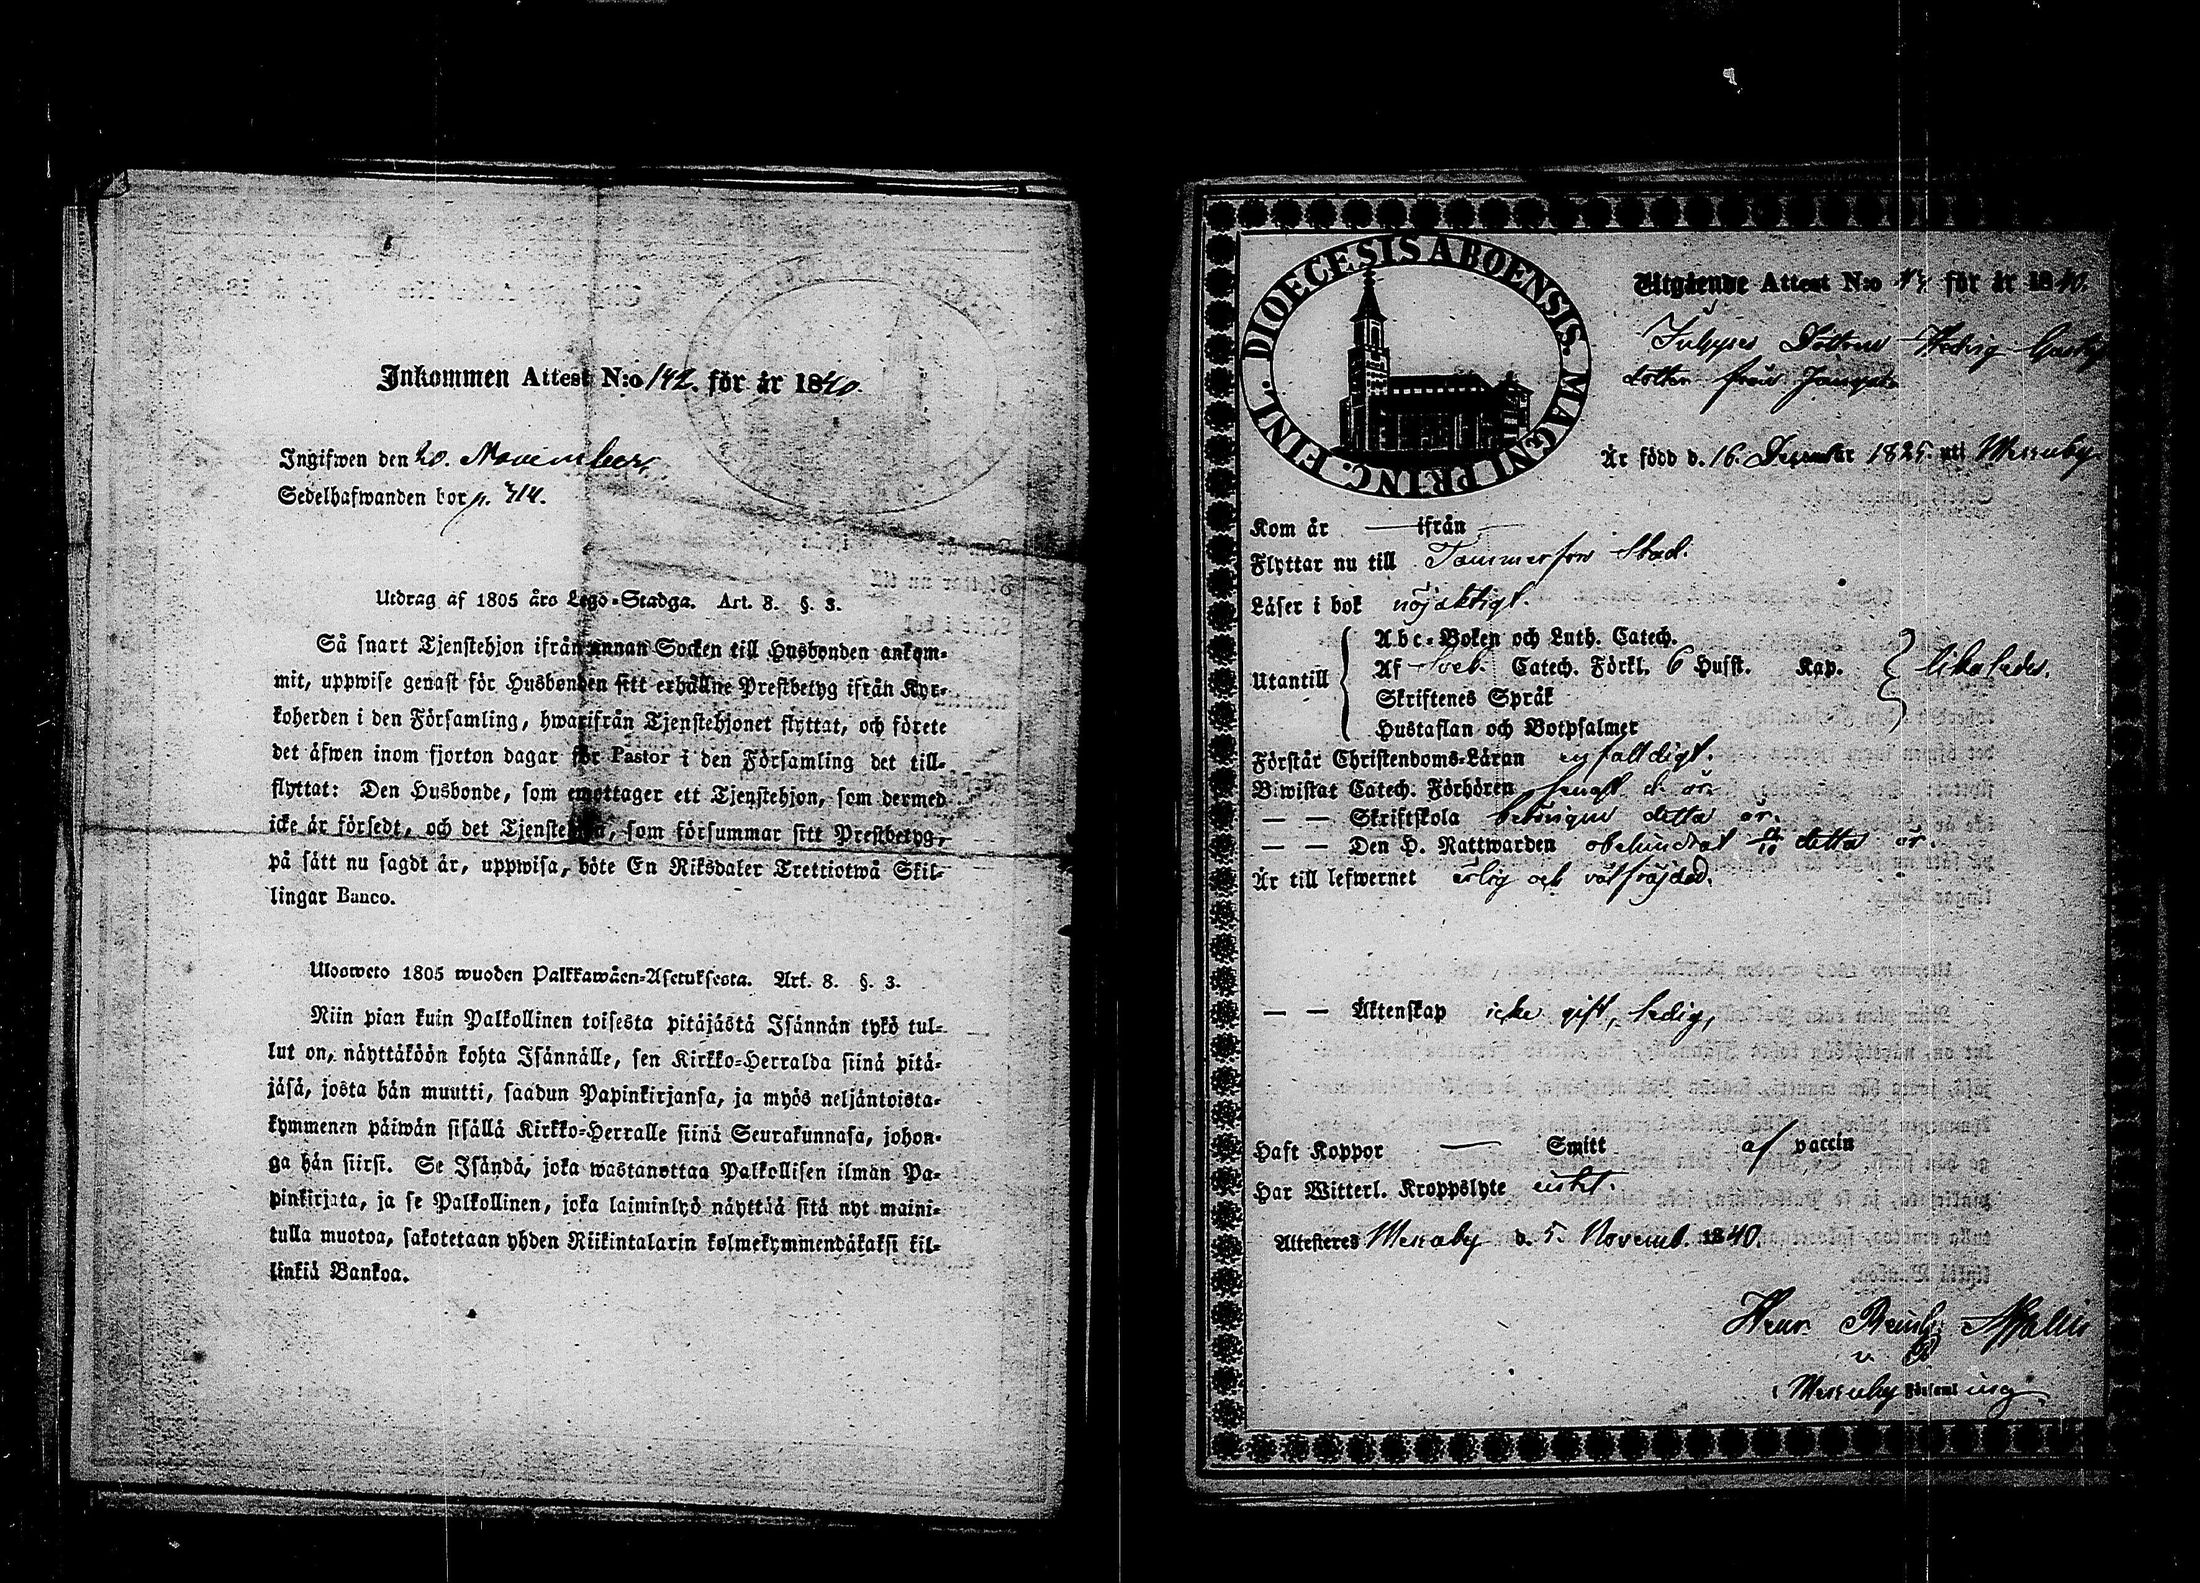 Inkommen Attest N:o 142. för år 1840.
Ingifwen den 20. November.
Sedelhafwanden bor p. 314.
Utdrag af 1805 års Lego-Stadga. Art. 8. §. 3.
Så snart Tjenstehjon ifrån annan Socken till Husbonden ankom-
mit, uppwise genast för Husbonden sitt erhållne Prestbetyg ifrån Kyr-
koherden i den Församling, hwarifrån Tjenstehjonet flyttat, och förete
det äfwen inom fjorton dagar för Pastor i den Församling det till-
flyttat: Den Husbonde, som emottager ett Tjenstehjon, som dermed
icke är försedt, och det Tjenstehjon, som försummar sitt Prestbetyg,
på sätt nu sagdt är, uppwisa, böte En Riksdaler Trettiotwå Skil-
lingar Banco.
Ulosweto 1805 wuoden Palkkawäen-Asetuksesta. Art. 8. §. 3.
Niin pian kuin Palkollinen toisesta pitäjästä Isännän tykö tul-
lut on, näyttäköön kohta Isännälle, sen Kirkko-Herralda siinä pitä-
jäsä, josta hän muutti, saadun Papinkirjansa, ja myös neljäntoista-
kymmenen päiwän sisällä Kirkko-Herralle siinä Seurakunnasa, johon-
ga hän siirsi. Se Isändä, joka wastanottaa Palkollisen ilman Pa-
pinkirjata, ja se Palkollinen, joka laiminlyö näyttää sitä nyt maini-
tulla muotoa, sakotetaan yhden Riikintalarin kolmekymmendäkaksi kil-
linkiä Bankoa.
DIOECESIS ABOENSIS. MAGNI PRINC. FINL.
Utgående Attest N:o för år 1840.
Dottren Hedvig
dotter från
Är född d. 16. December 1825. uti Messuby
Kom år — ifrån —
Flyttar nu till Tammerfors Stad.
Läser i bok nöjaktigt.
Utantill
Abc-Boken och Luth. Catech.
Af Sveb. Catech. Förkl. 6 Hufst. Kap.
Skriftenes Språk
Hustaflan och Botpsalmer
likaledes.
Förstår Christendoms-Läran enfaldigt.
Biwistat Catech. Förhören senast d. år.
— — Skriftskola detta år.
— — Den H. Nattwarden obehindrat detta år.
Är till lefwernet ärlig och välfräjdad.
— — Äktenskap icke gift, ledig,
Haft Koppor — Smitt af vaccin
Har Witterl. Kroppslyte intet.
Attesteres Messuby d. 5. Novemb. 1840.
Henr.
i Messuby Församling